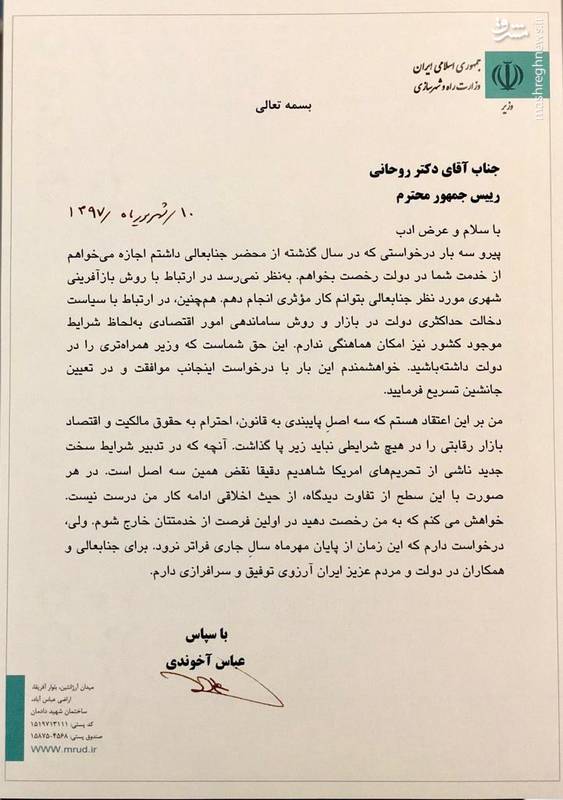 مشرق
mashreghnews.ir
جمهوری اسلامی ایران
وزارت راه و شهرسازی
وزیر
بسمه تعالی
جناب آقای دکتر روحانی
رییس جمهور محترم
۱۰/شهریورماه/۱۳۹۷
با سلام و عرض ادب
پیرو سه بار درخواستی که در سال گذشته از محضر جنابعالی داشتم اجازه می‌خواهم
از خدمت شما در دولت رخصت بخواهم. به‌نظر نمی‌رسد در ارتباط با روش بازآفرینی
شهری مورد نظر جنابعالی بتوانم کار مؤثری انجام دهم. هم‌چنین، در ارتباط با سیاست
دخالت حداکثری دولت در بازار و روش ساماندهی امور اقتصادی به‌لحاظ شرایط
موجود کشور نیز امکان هماهنگی ندارم. این حق شماست که وزیر همراه‌تری را در
دولت داشته‌باشید. خواهشمندم این بار با درخواست اینجانب موافقت و در تعیین
جانشین تسریع فرمایید.
من بر این اعتقاد هستم که سه اصلِ پایبندی به قانون، احترام به حقوق مالکیت و اقتصاد
بازار رقابتی را در هیچ شرایطی نباید زیر پا گذاشت. آنچه که در تدبیر شرایط سخت
جدید ناشی از تحریم‌های امریکا شاهدیم دقیقا نقض همین سه اصل است. در هر
صورت با این سطح از تفاوت دیدگاه، از حیث اخلاقی ادامه کار من درست نیست.
خواهش می کنم که به من رخصت دهید در اولین فرصت از خدمتتان خارج شوم. ولی،
درخواست دارم که این زمان از پایان مهرماه سالِ جاری فراتر نرود. برای جنابعالی و
همکاران در دولت و مردم عزیز ایران آرزوی توفیق و سرافرازی دارم.
با سپاس
عباس آخوندی
میدان آرژانتین، بلوار آفریقا،
اراضی عباس آباد،
ساختمان شهید دادمان
کد پستی: ۱۵۱۹۷۱۳۱۱۱
صندوق پستی: ۴۵۶۸-۱۵۸۷۵
WWW.mrud.ir